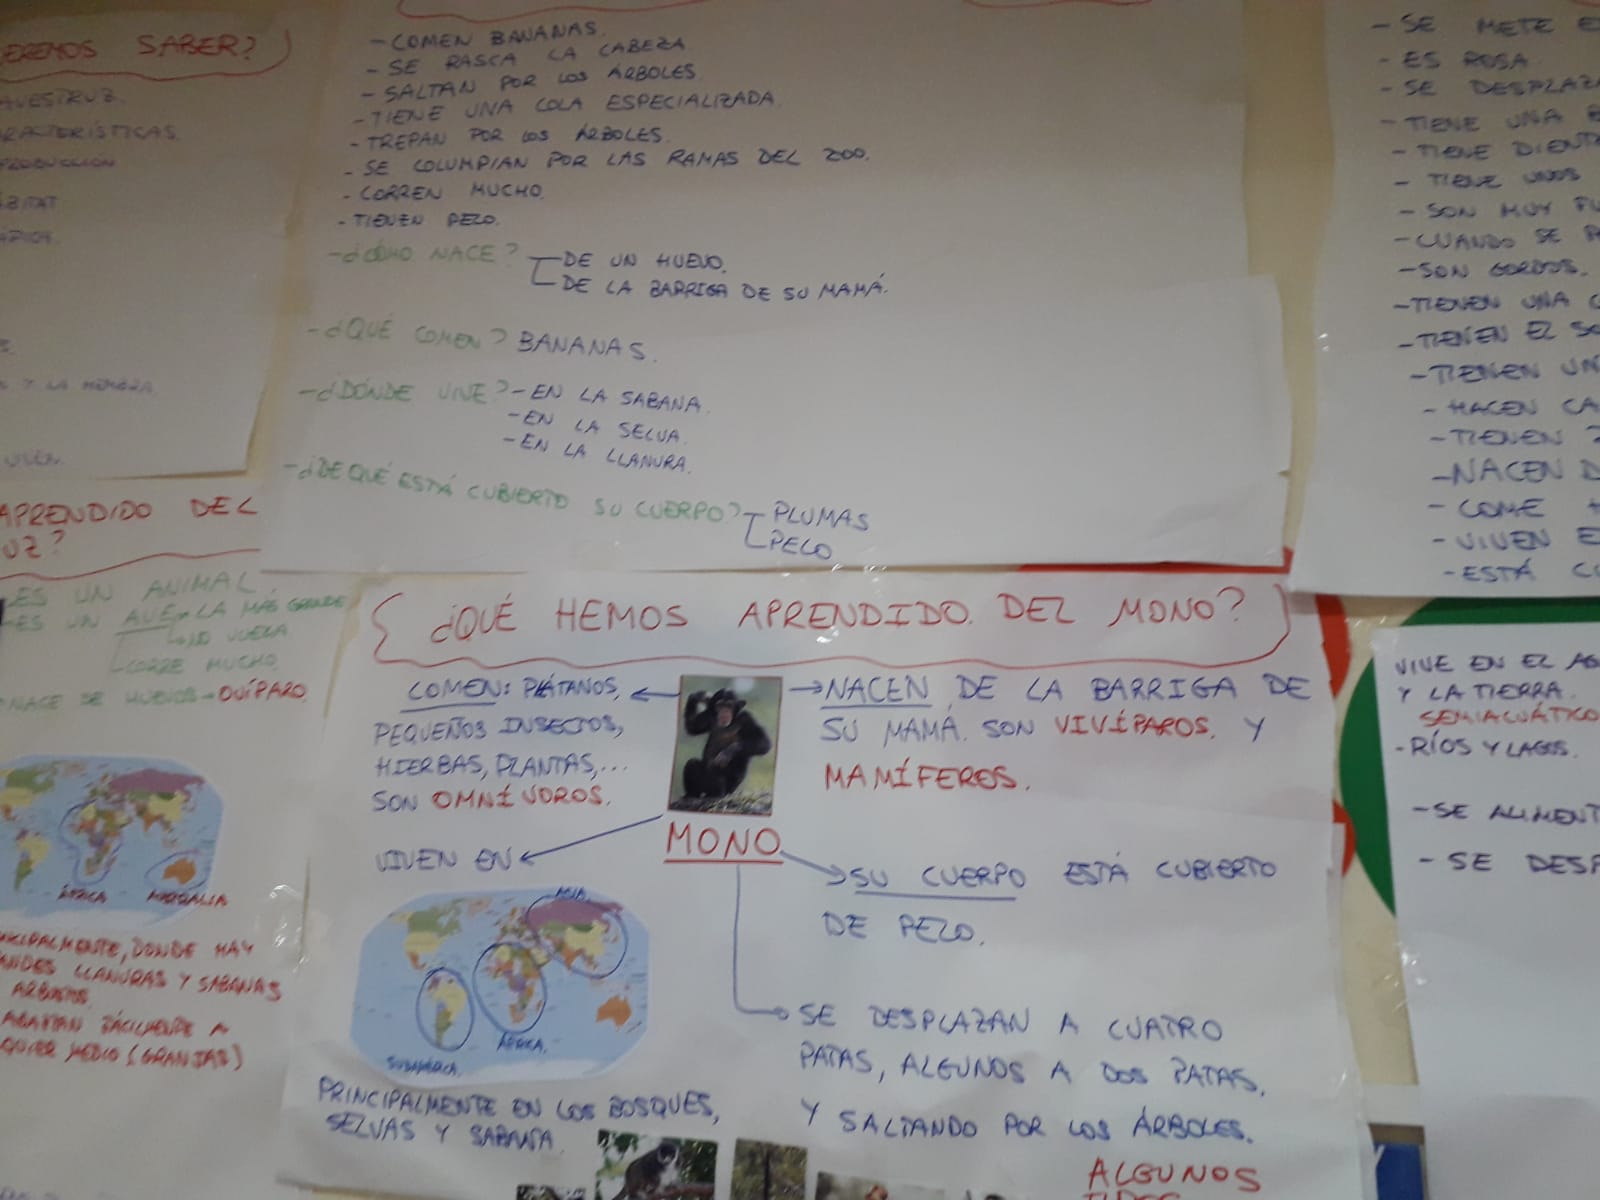 SABER?
AVESTRUZ.
S Y LA HEMBRA.
- COMEN BANANAS.
- SE RASCA LA CABEZA
- SALTAN POR LOS ÁRBOLES
- TIENE UNA COLA ESPECIALIZADA.
- TREPAN POR LOS ÁRBOLES.
- SE COLUMPIAN POR LAS RAMAS DEL ZOO.
- CORREN MUCHO.
- TIENEN PELO.
- ¿CÓMO NACE?
DE UN HUEVO.
DE LA BARRIGA DE SU MAMÁ.
- ¿QUÉ COMEN? BANANAS.
- ¿DÓNDE VIVE? - EN LA SABANA.
- EN LA SELVA.
- EN LA LLANURA.
- ¿DE QUÉ ESTÁ CUBIERTO SU CUERPO?
PLUMAS
PELO
- SE METE E
- ES ROSA.
- SE DESPLAZA
- TIENE UNA
- TIENE DIENT
- TIENE UNOS
- SON MUY FU
- CUANDO SE
- SON GORDOS.
- TIENEN UNA C
- TIENEN EL SO
- TIENEN UN
- HACEN CA
- TIENEN
- NACEN D
- COME
- VIVEN E
- ESTÁ CU
APRENDIDO DEL
UZ?
ES UN ANIMAL
- ES UN AVE → LA MÁS GRANDE
NO VUELA
CORRE MUCHO.
NACE DE HUEVOS → OVÍPARO.
ÁFRICA
AUSTRALIA
PRINCIPALMENTE, DONDE HAY
ANDES LLANURAS Y SABANAS
¿QUÉ HEMOS APRENDIDO DEL MONO?
COMEN: PLÁTANOS,
PEQUEÑOS INSECTOS,
HIERBAS, PLANTAS,...
SON OMNÍVOROS.
NACEN DE LA BARRIGA DE
SU MAMÁ. SON VIVÍPAROS. Y
MAMÍFEROS.
MONO
VIVEN EN
ASIA
ÁFRICA.
PRINCIPALMENTE EN LOS BOSQUES,
SELVAS Y SABANA.
SU CUERPO ESTÁ CUBIERTO
DE PELO.
SE DESPLAZAN A CUATRO
PATAS, ALGUNOS A DOS PATAS,
Y SALTANDO POR LOS ÁRBOLES.
ALGUNOS
VIVE EN EL AG
Y LA TIERRA.
SEMIACUÁTICO
- RÍOS Y LAGOS.
- SE ALIMENT
- SE DESP